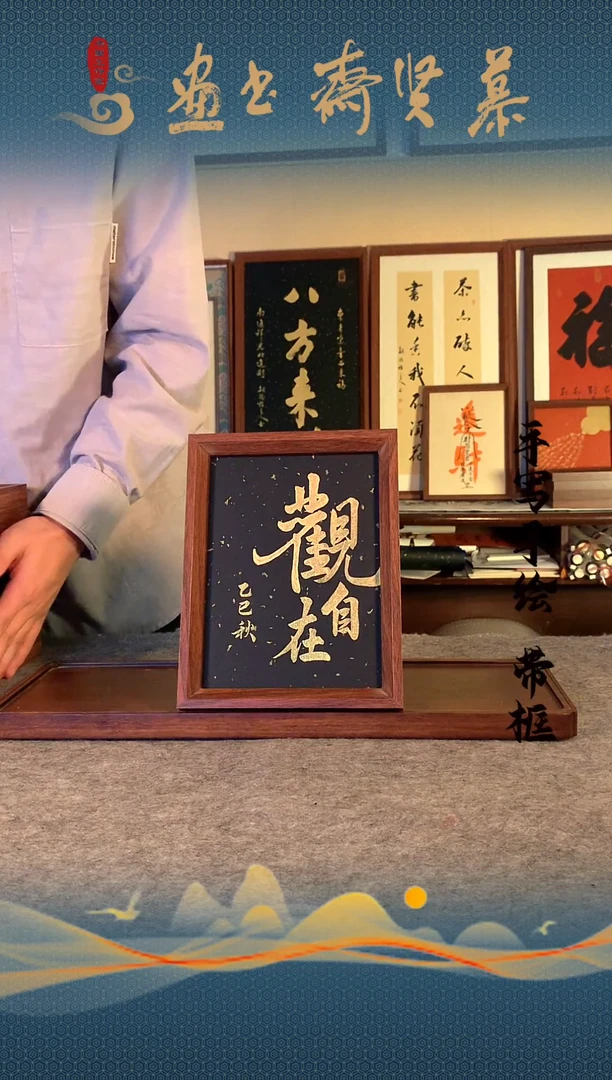 慕贤齋书画
八方来
茶亦醉人
書能香我不須花
福
觀自在
乙巳秋
手写手绘 带框